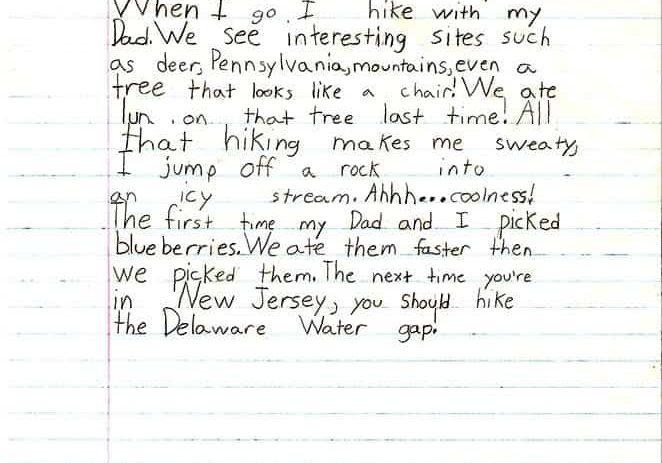 When I go I hike with my
Dad. We see interesting sites such
as deer, Pennsylvania, mountains, even a
tree that looks like a chair! We ate
lun on that tree last time! All
that hiking makes me sweaty,
I jump off a rock into
an icy stream. Ahhh...coolness!
The first time my Dad and I picked
blueberries. We ate them faster then
we picked them. The next time you're
in New Jersey, you should hike
the Delaware Water gap!